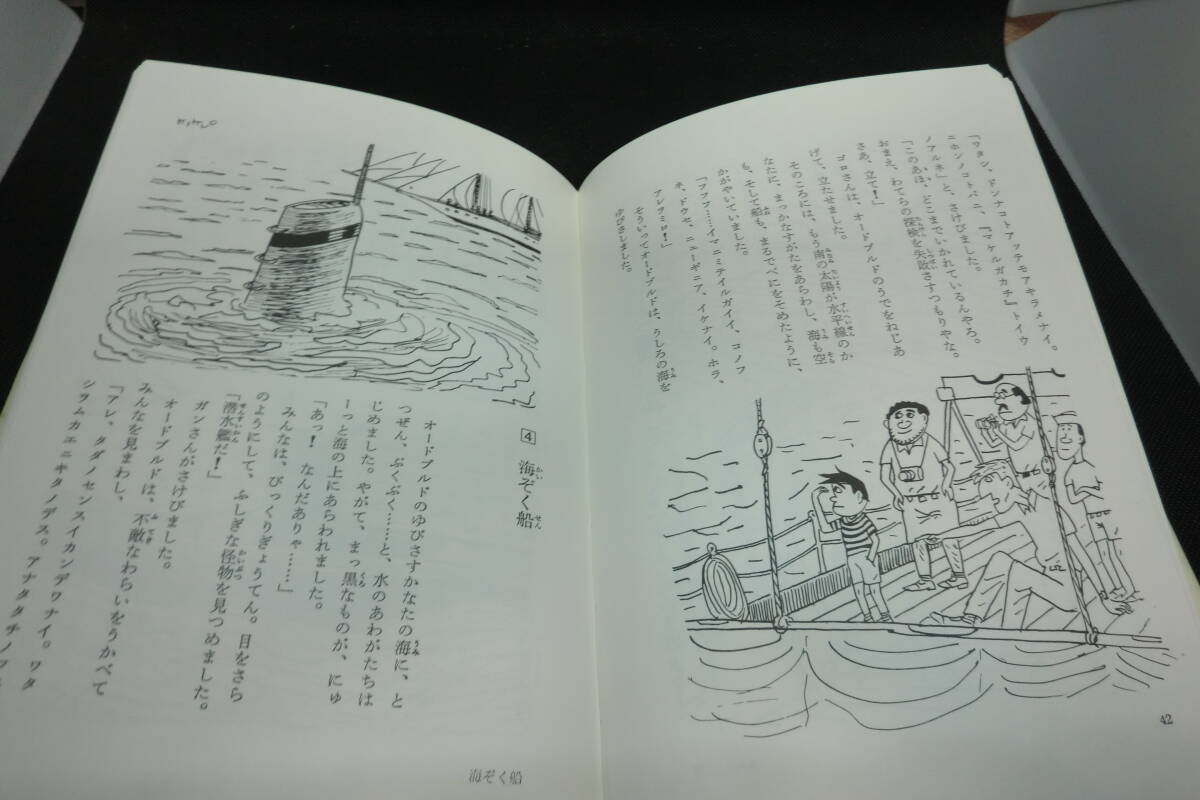 「ワタシ、ドンナコトアッテモアキラメナイ。
ニホンノコトバニ、『マケルガカチ』トイウ
ノアルネ」と、さけびました。
「このあほ、どこまでいかれているんやろ。
おまえ、わてらの探検を失敗さすつもりやな。
さあ、立て！」
ゴロさんは、オードブルドのうでをねじあ
げて、立たせました。
そのころには、もう南の太陽が水平線のか
なたに、まっかなすがたをあらわし、海も空
も、そして船も、まるでべにをそめたように、
かがやいていました。
「フフフ……イマニミテイルガイイ、コノフ
ネ、ドウセ、ニューギニア、イケナイ。ホラ、
アレヲミロ！」
そういってオードブルドは、うしろの海を
ゆびさしました。
42
4 海ぞく船
オードブルドのゆびさすかなたの海に、と
つぜん、ぶくぶく……と、水のあわがたちは
じめました。やがて、まっ黒なものが、にゅ
ーっと海の上にあらわれました。
「あっ！　なんだありゃ……」
みんなは、びっくりぎょうてん。目をさら
のようにして、ふしぎな怪物を見つめました。
「潜水艦だ！」
ガンさんがさけびました。
オードブルドは、不敵なわらいをうかべて
みんなを見まわし、
「アレ、タダノセンスイカンデワナイ。ワタ
シヲムカエニキタノデス。アナタタチノフ
海ぞく船